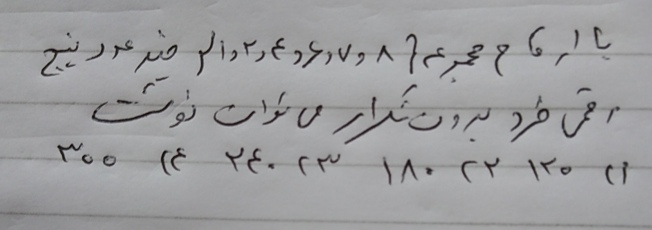 با ارقام مجموعه {۸ و ۷ و ۶ و ۴ و ۲ و ۱} چند عدد پنج
رقمی فرد بدون تکرار می توان نوشت
۱) ۱۲۰ ۲) ۱۸۰ ۳) ۲۴۰ ۴) ۳۰۰